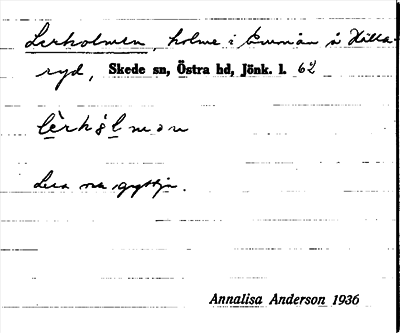 Lerholmen, holme i Emmån å Hälla-
ryd, Skede sn, Östra hd, Jönk. l. 62
lèrhól̠mən
Lera och gyttja.
Annalisa Anderson 1936